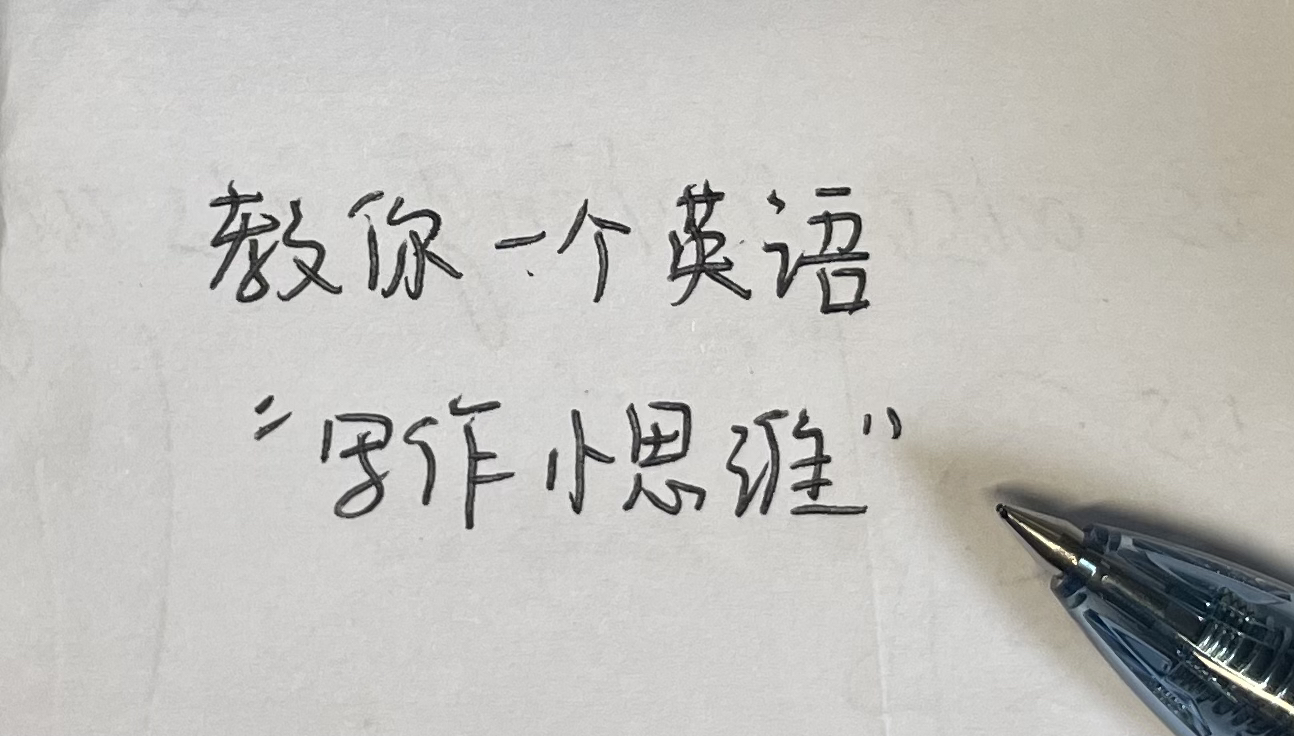 教你一个英语
“写作小思维”